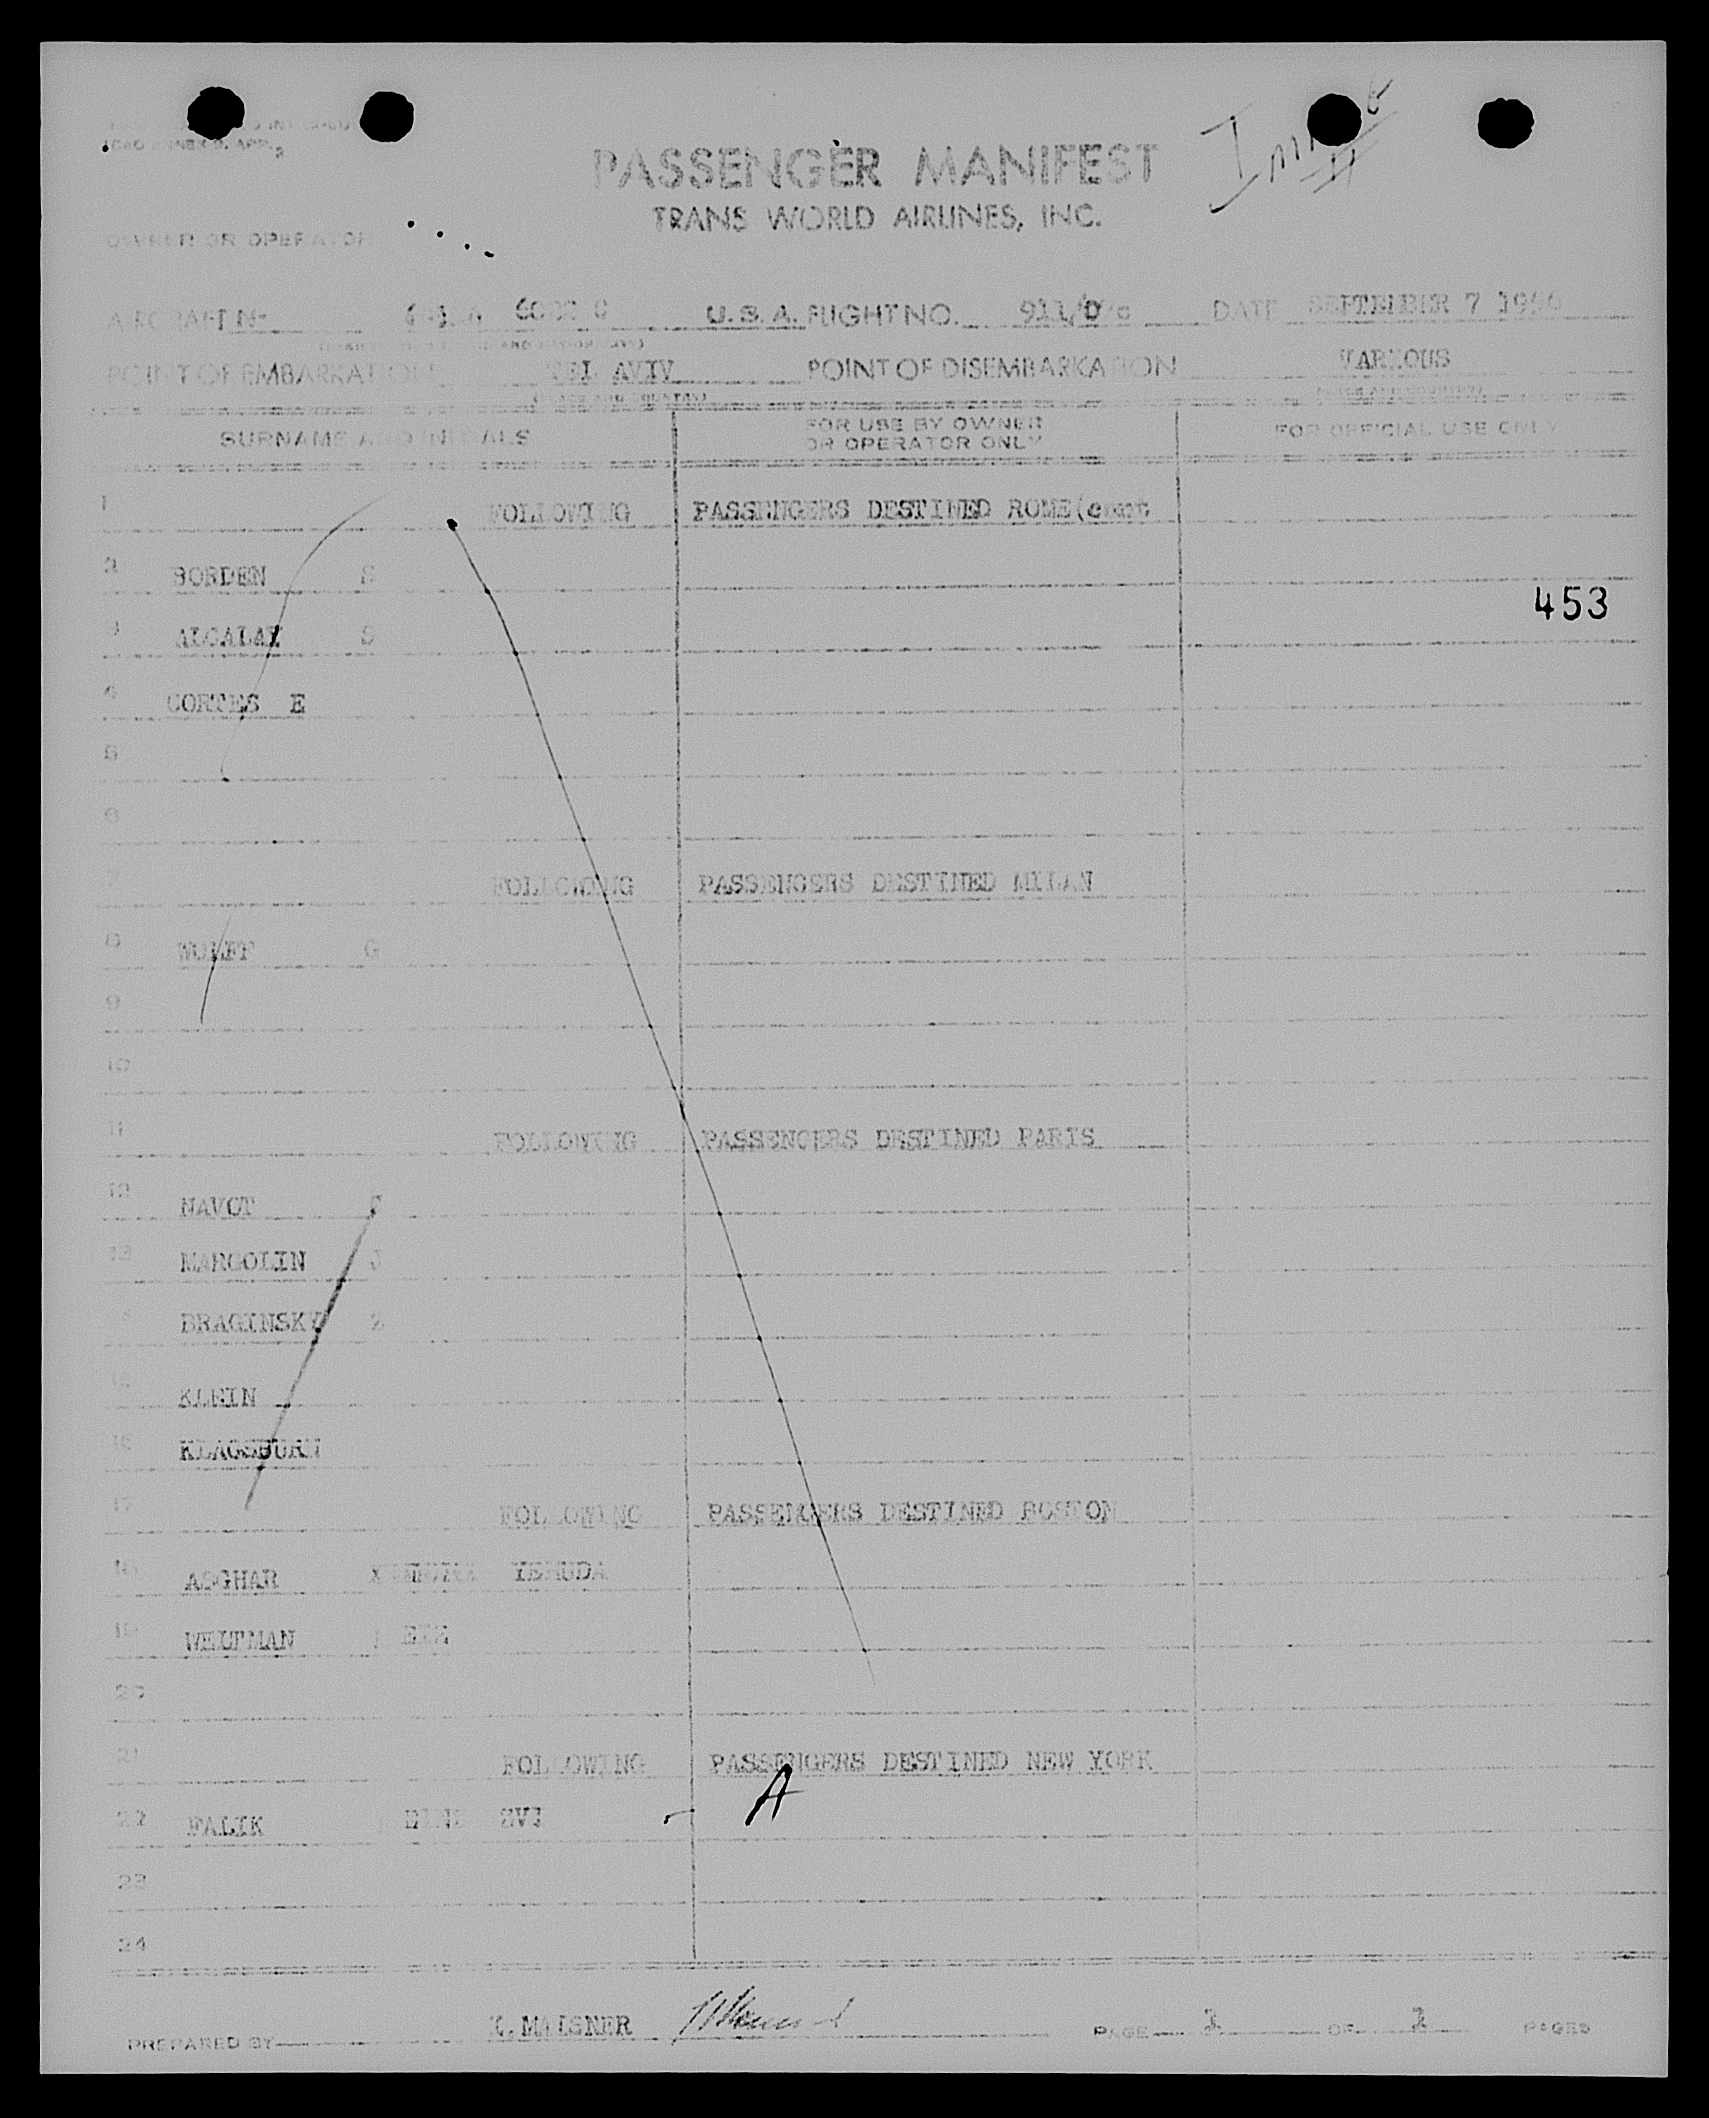 PASSENGER MANIFEST
TRANS WORLD AIRLINES, INC.
OWNER OR OPERATOR
AIRCRAFT No U.S.A. FLIGHT NO. 911/ DATE SEPTEMBER 7 1956
POINT OF EMBARKATION TEL AVIV POINT OF DISEMBARKATION VARIOUS
SURNAME AND INITIALS FOR USE BY OWNER OR OPERATOR ONLY FOR OFFICIAL USE ONLY
1 FOLLOWING PASSENGERS DESTINED ROME (cont
2 BORDEN S
453
3 ALCALAY S
4 CORTES E
5
6
7 FOLLOWING PASSENGERS DESTINED MILAN
8 WOLFF G
9
10
11 FOLLOWING PASSENGERS DESTINED PARIS
12 NAVOT
13 MARGOLIN J
14 BRAGINSKY Z
15 KLEIN
16 KLAGSBURN
17 FOLLOWING PASSENGERS DESTINED BOSTON
18 ASGHAR YEHUDA
19 WELTMAN
20
21 FOLLOWING PASSENGERS DESTINED NEW YORK
22 FALIK ZVI A
23
24
PREPARED BY MAISNER PAGE 2 OF 2 PAGES